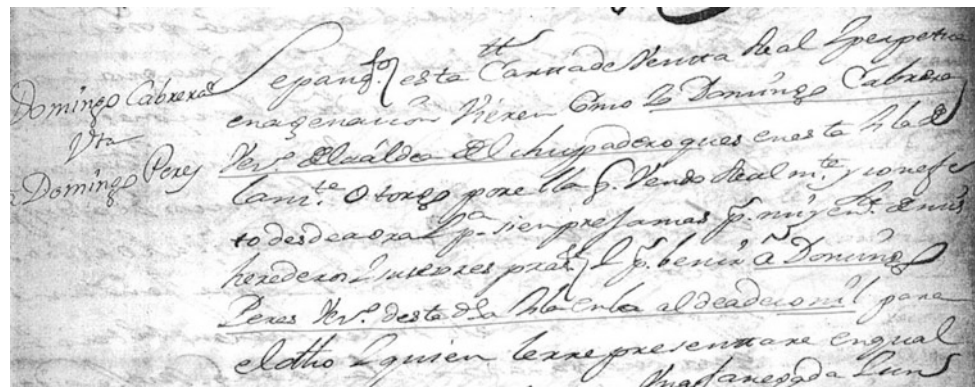 Domingo Cabrera
Vta
Domingo Peres
Sepan qº esta Carta de Venta Real y perpetua
enagenacion Vieren Como yo Domingo Cabrera
Vezº. del aldea del chupadero ques en esta Ysla de
Canª.te Otorgo por ella q. Vendo Realm.te y con efec
to desde aora y pª. sienpre Jamas p. mi y en n.e de mis
herederos y susesores pres.tes y p. benir a Domingo
Peres Vezº. desta dha Ysla en la aldea de conil para
el dho y quien le rrepresentare en qual
Una fanegada y un